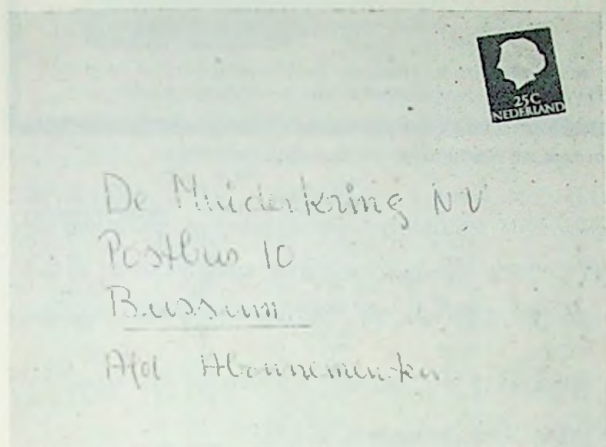 25C
NEDERLAND
De Muiderkring NV
Postbus 10
Bussum
Afd Abonnementen